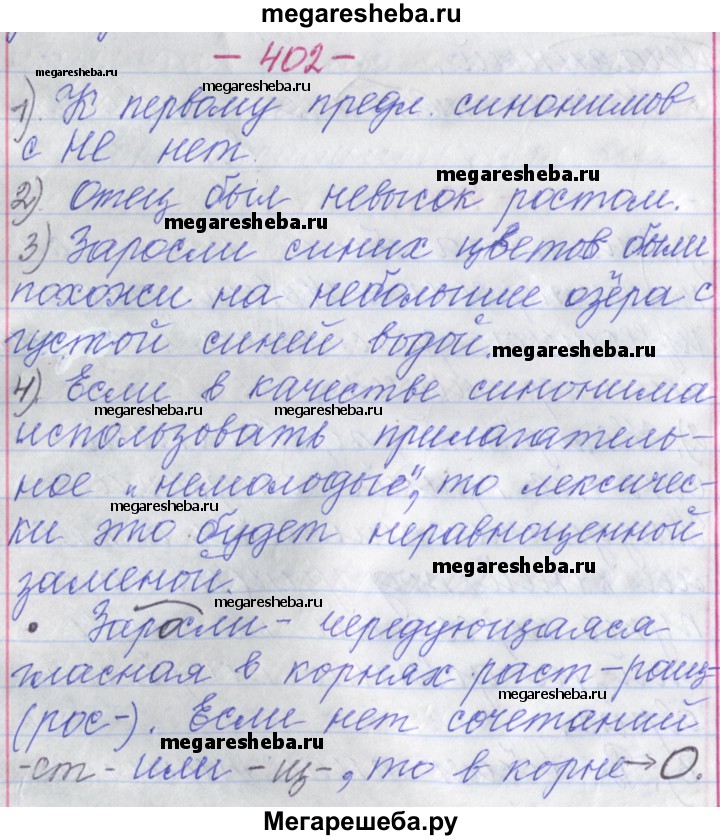 megaresheba.ru
- 402 -
megaresheba.ru
megaresheba.ru
1) К первому предл. синонимов
с НЕ нет.
megaresheba.ru
2) Отец был невысок ростом.
megaresheba.ru
3) Заросли синих цветов были
megaresheba.ru
похожи на небольшие озёра с
густой синей водой.
megaresheba.ru
4) Если в качестве синонима
megaresheba.ru megaresheba.ru
использовать прилагатель-
ное „немолодые", то лексичес-
megaresheba.ru
ки это будет неравноценной
megaresheba.ru
заменой.
megaresheba.ru
• Заросли - чередующаяся
гласная в корнях раст-ращ-
megaresheba.ru
(рос-). Если нет сочетаний
megaresheba.ru
-ст- или -щ-, то в корне → О.
Мегарешеба.ру